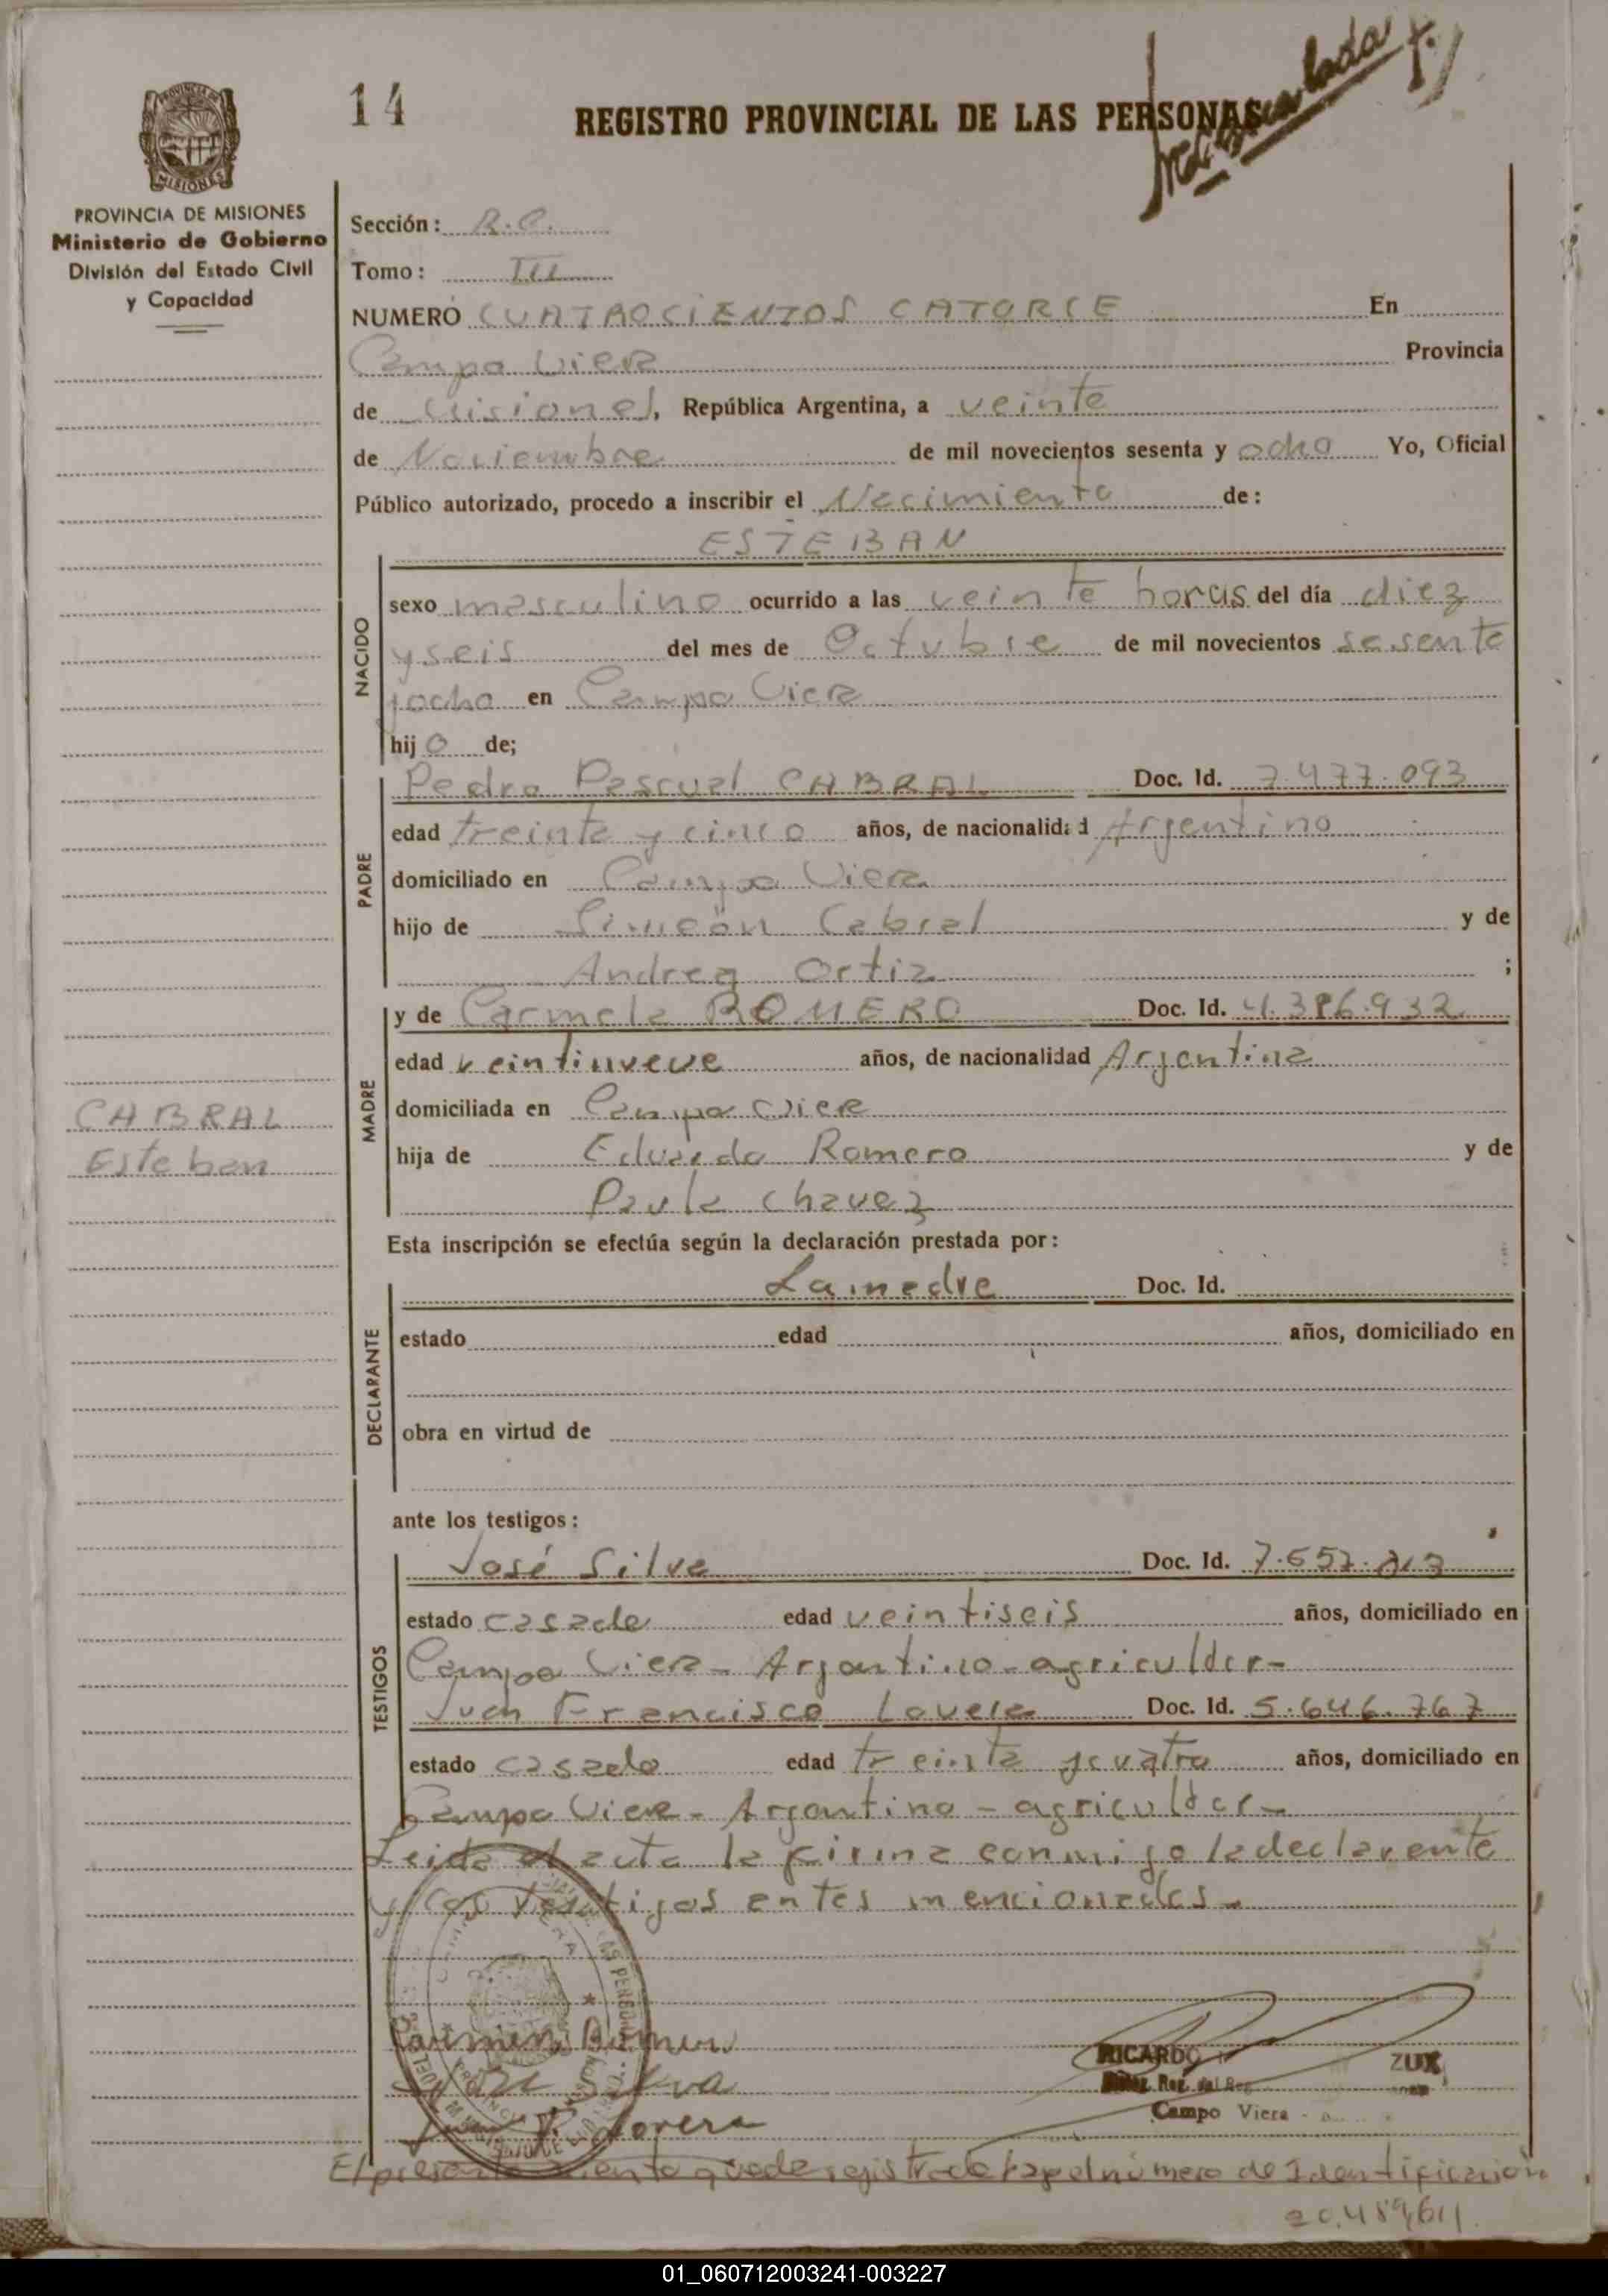 14
REGISTRO PROVINCIAL DE LAS PERSONAS
PROVINCIA DE MISIONES
Ministerio de Gobierno
División del Estado Civil
y Capacidad
Sección: R.C.
Tomo: III
NUMERO CUATROCIENTOS CATORCE En
Campo Viera Provincia
de Misiones, República Argentina, a veinte
de Noviembre de mil novecientos sesenta y ocho Yo, Oficial
Público autorizado, procedo a inscribir el Nacimiento de:
ESTEBAN
NACIDO
sexo masculino ocurrido a las veinte horas del día diez
y seis del mes de Octubre de mil novecientos sesenta
y ocho en Campo Viera
hijo de;
PADRE
Pedro Pascual CABRAL Doc. Id. 7.477.093
edad treinta y cinco años, de nacionalidad Argentino
domiciliado en Campo Viera
hijo de Simeón Cabral y de
Andrea Ortiz ;
MADRE
y de Carmela ROMERO Doc. Id. 4.386.932
edad veintinueve años, de nacionalidad Argentina
domiciliada en Campo Viera
hija de Eduardo Romero y de
Paula Chavez
CABRAL
Esteban
Esta inscripción se efectúa según la declaración prestada por:
DECLARANTE
La madre Doc. Id.
estado edad años, domiciliado en
obra en virtud de
ante los testigos:
TESTIGOS
José Silva Doc. Id. 7.657.
estado casado edad veintiseis años, domiciliado en
Campo Viera - Argentino - agricultor -
Juan Francisco Lovera Doc. Id. 5.646.767
estado casado edad treinta y cuatro años, domiciliado en
Campo Viera - Argentino - agricultor -
Leida el acta la firma conmigo la declarante
y los testigos antes mencionados -
Silva
Lovera
RICARDO ZUK
Campo Viera
El presente queda registrado bajo el número de Identificación
20.489,611
01_060712003241-003227